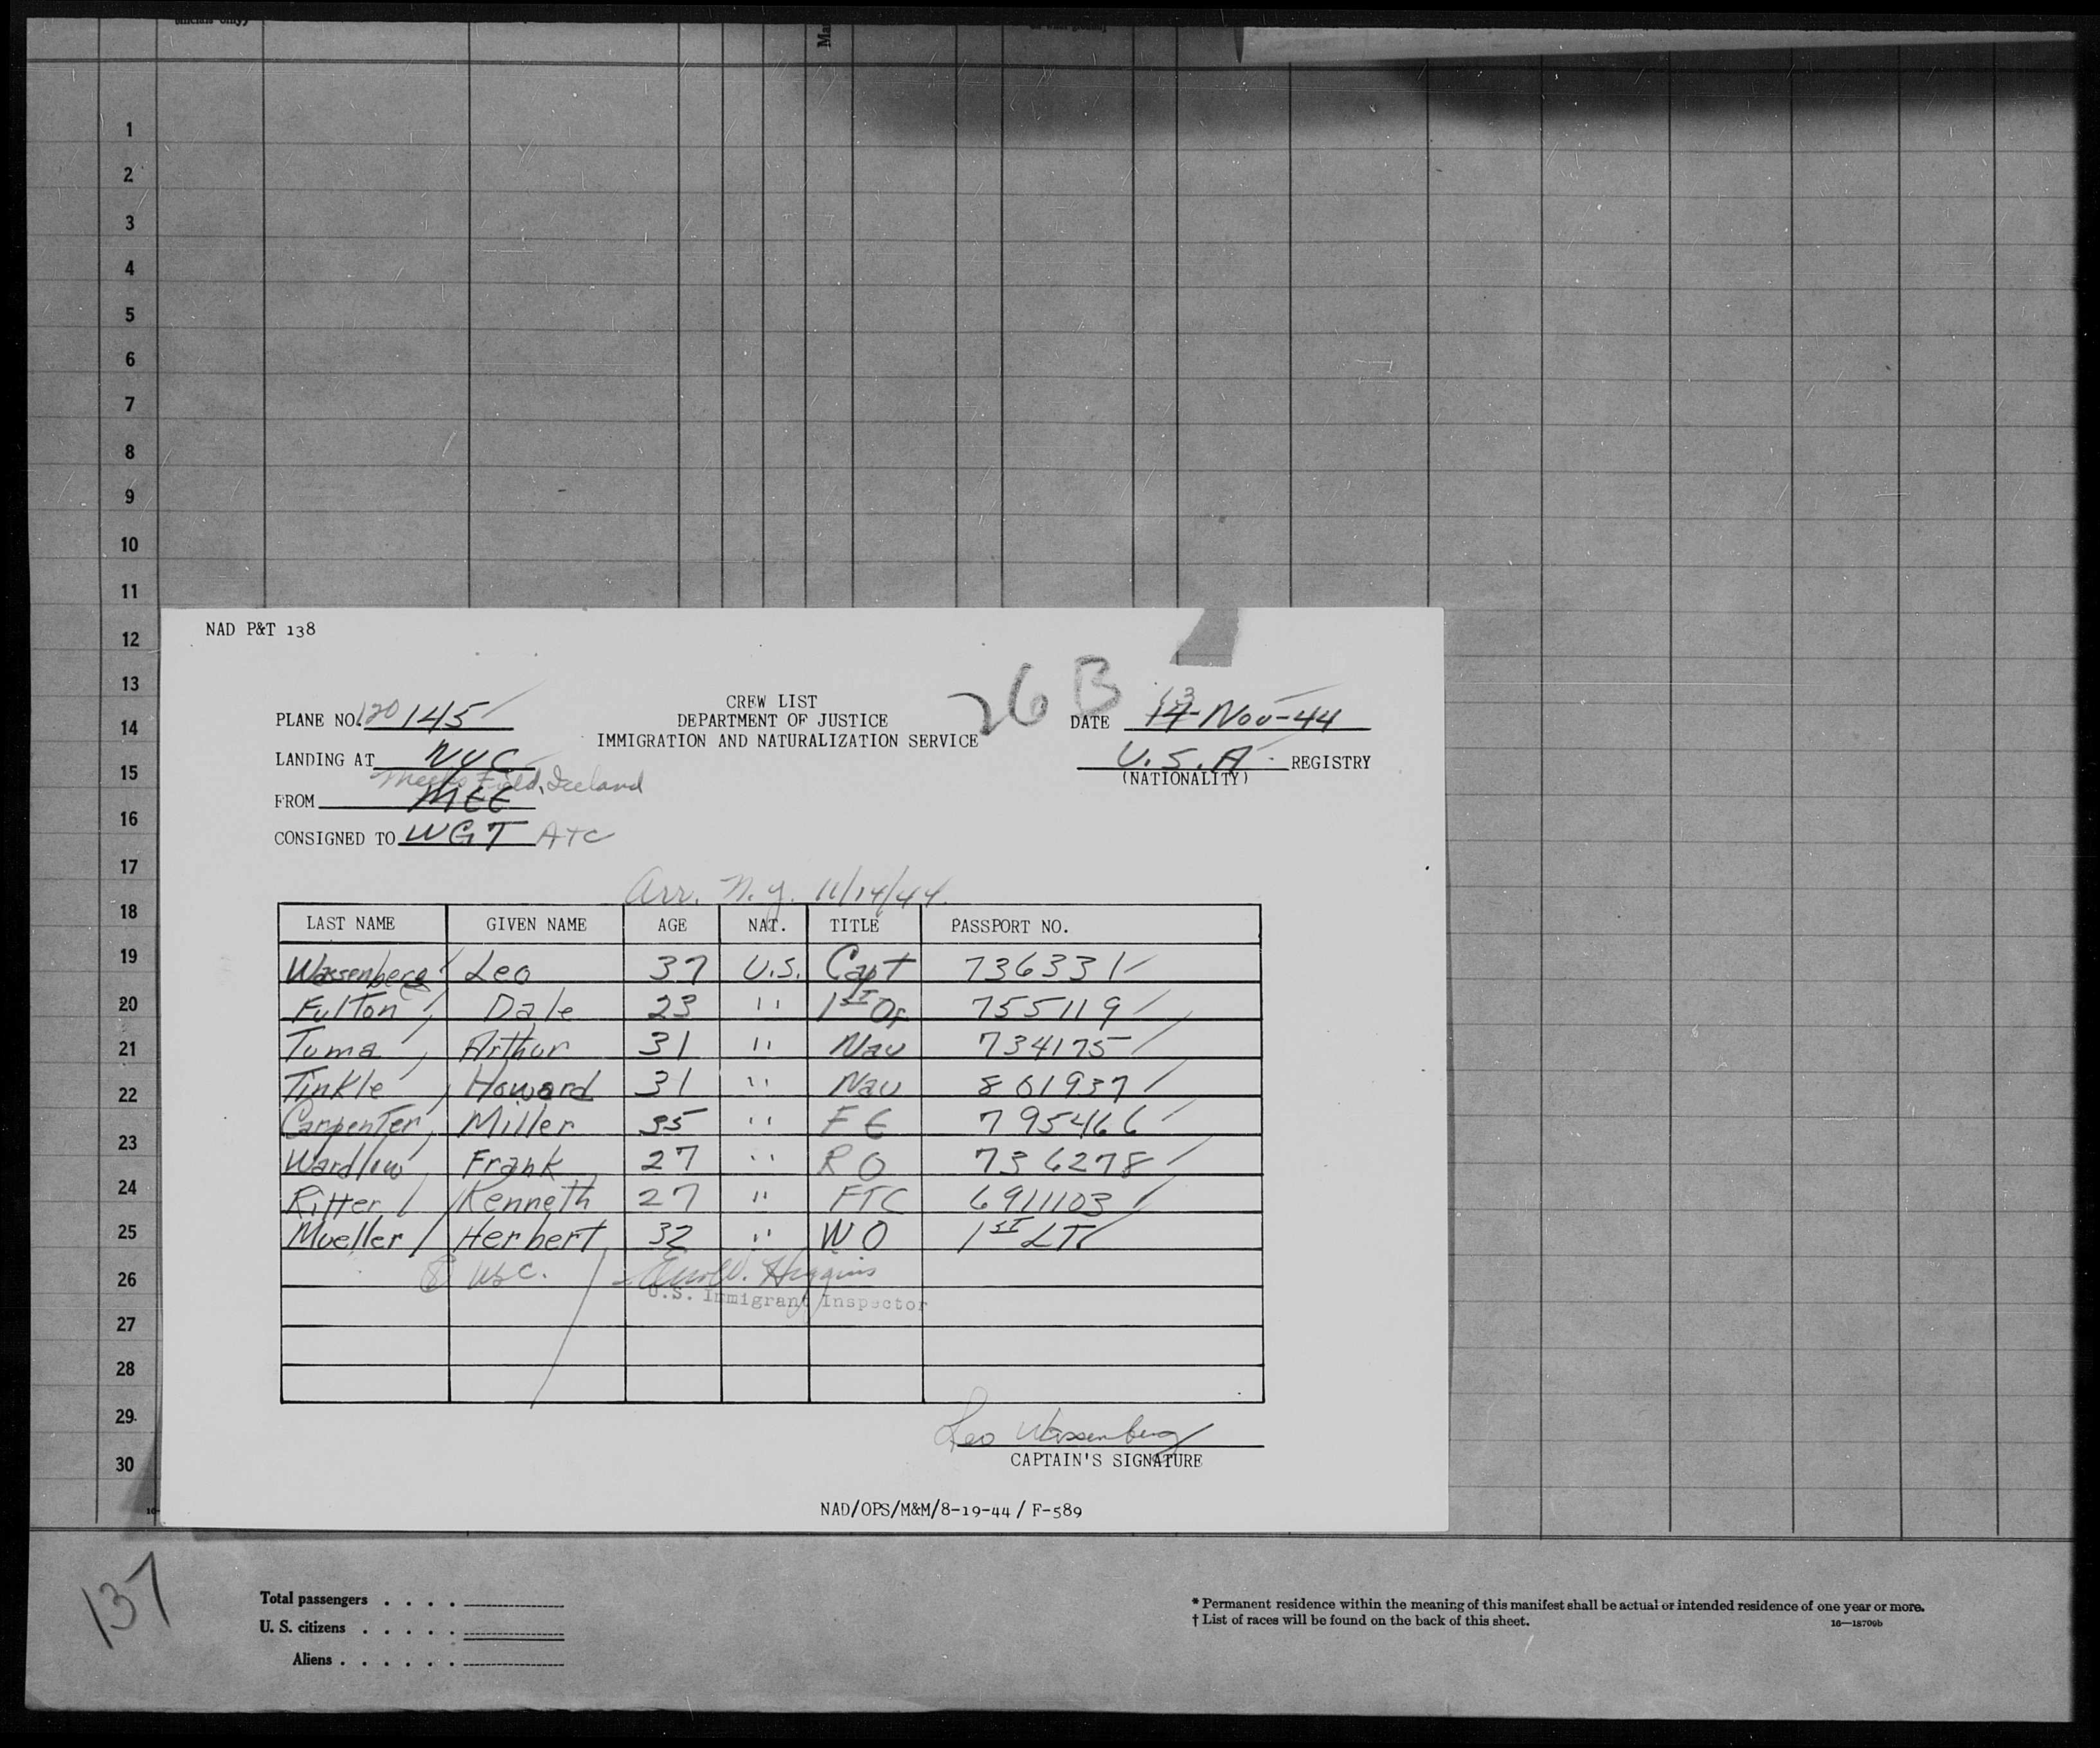 1
2
3
4
5
6
7
8
9
10
11
12
13
14
15
16
17
18
19
20
21
22
23
24
25
26
27
28
29.
30
NAD P&T 138
26 B
PLANE NO. 120 145
CREW LIST
DEPARTMENT OF JUSTICE
IMMIGRATION AND NATURALIZATION SERVICE
DATE 13 14-Nov-44
LANDING AT NYC
U.S.A. REGISTRY
(NATIONALITY)
Meeks Field, Iceland
FROM MEE
CONSIGNED TO WGT ATC
Arr. N.Y. 11/14/44.
LAST NAME GIVEN NAME AGE NAT. TITLE PASSPORT NO.
Wassenberg Leo 37 U.S. Capt 736331
Fulton, Dale 23 " 1ST Of 755119
Tuma, Arthur 31 " Nav 734175
Tinkle, Howard 31 " Nav 801937
Carpenter, Miller 35 " FE 795466
Wardlow, Frank 27 " RO 736278
Ritter, Kenneth 27 " FTC 6911103
Mueller, Herbert 32 " WO 1ST LT
8 USC. Higgins
U.S. Immigrant Inspector
Leo Wassenberg
CAPTAIN'S SIGNATURE
NAD/OPS/M&M/8-19-44 / F-589
137
Total passengers . . . .
U. S. citizens . . . . .
Aliens . . . . . .
* Permanent residence within the meaning of this manifest shall be actual or intended residence of one year or more.
† List of races will be found on the back of this sheet.
16—18709b